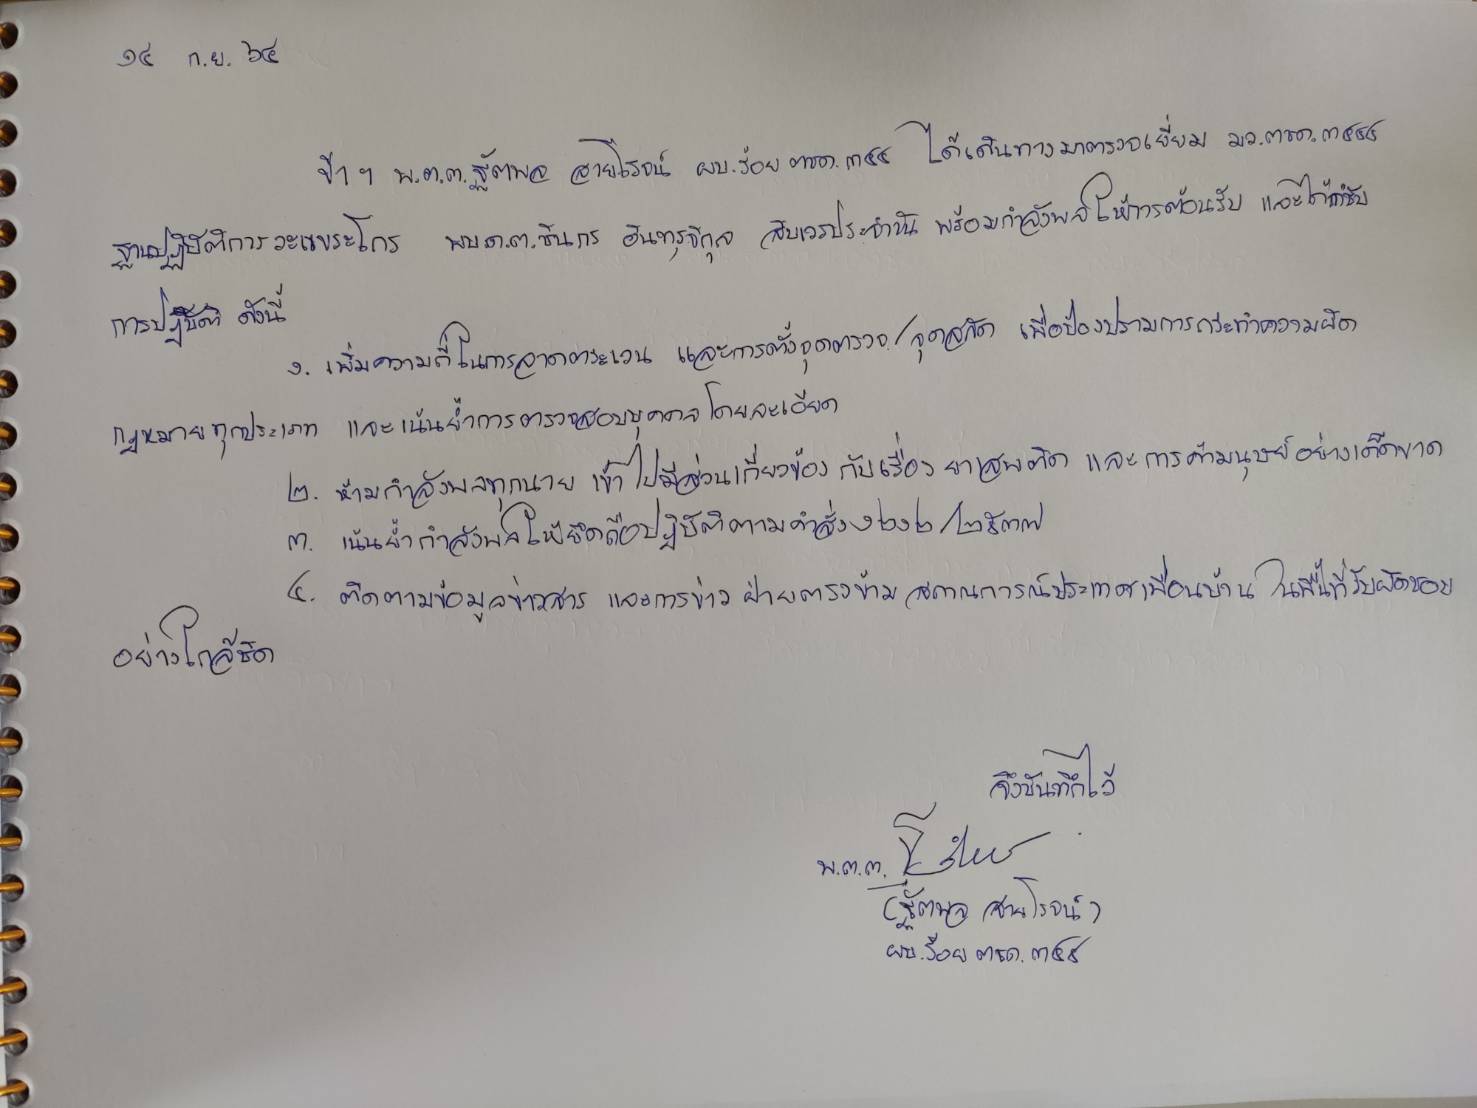 ๑๔ ก.ย. ๖๔
ข้าฯ พ.ต.ต.ฐัตพล สายโรจน์ ผบ.ร้อย ตชด.๓๔๔ ได้เดินทางมาตรวจเยี่ยม มว.ตชด.๓๔๔๔
ฐานปฏิบัติการวะแพระโกร พบ ด.ต.ชินกร อินทรุจิกุล สิบเวรประจำวัน พร้อมกำลังพลให้การต้อนรับ และได้กำชับ
การปฏิบัติ ดังนี้
๑. เพิ่มความถี่ในการลาดตระเวน และการตั้งจุดตรวจ/จุดสกัด เพื่อป้องปรามการกระทำความผิด
กฎหมายทุกประเภท และเน้นย้ำการตรวจสอบบุคคลโดยละเอียด
๒. ห้ามกำลังพลทุกนาย เข้าไปมีส่วนเกี่ยวข้อง กับเรื่อง ยาเสพติด และการค้ามนุษย์อย่างเด็ดขาด
๓. เน้นย้ำกำลังพลให้ยึดถือปฏิบัติตามคำสั่ง ๑๒๑๒/๒๕๓๗
๔. ติดตามข้อมูลข่าวสาร และการข่าว ฝ่ายตรงข้าม สถานการณ์ประเทศเพื่อนบ้าน ในพื้นที่รับผิดชอบ
อย่างใกล้ชิด
จึงบันทึกไว้
พ.ต.ต.
(ฐัตพล สายโรจน์)
ผบ.ร้อย ตชด.๓๔๔